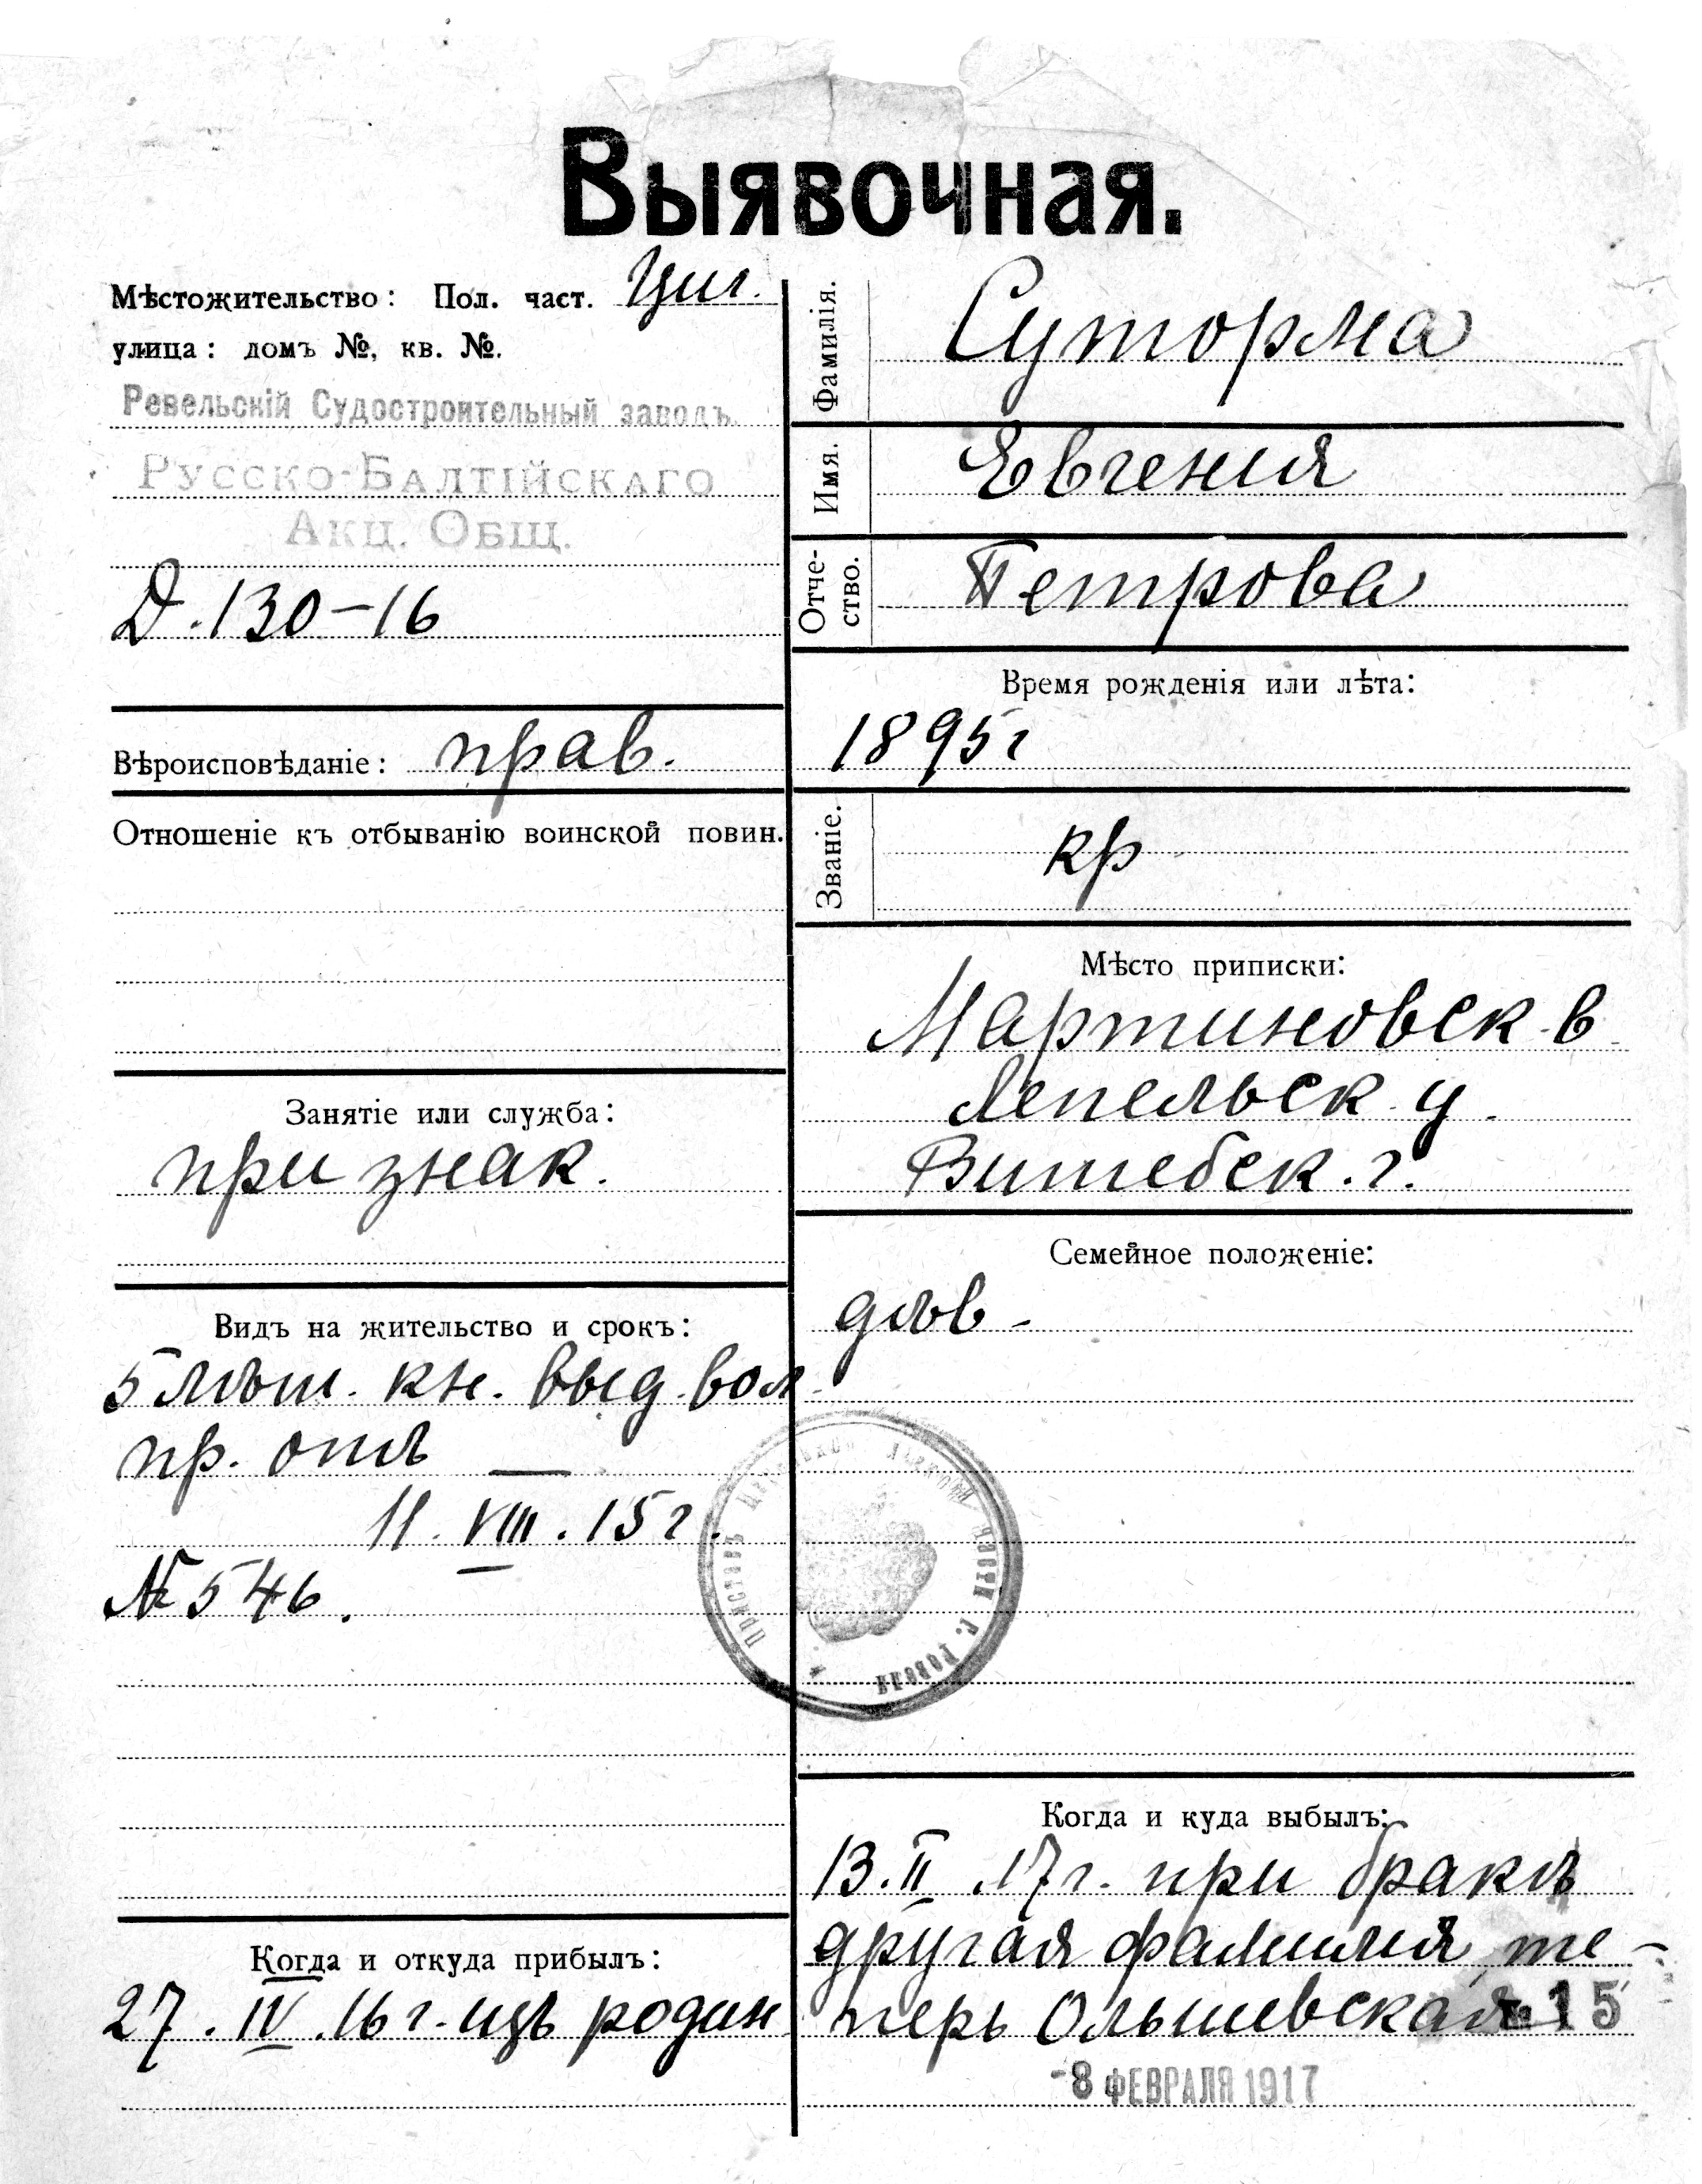 Выявочная.
Мѣстожительство: Пол. част. Циг.
улица: домъ №, кв. №.
Ревельскій Судостроительный заводъ
Русско-Балтійскаго
Акц. Общ.
Д. 130-16
Вѣроисповѣданіе: прав.
Отношеніе къ отбыванію воинской повин.
Занятіе или служба:
при знак.
Видъ на жительство и срокъ:
5 лѣт. кн. выд. вол.
пр. отъ —
11. VIII. 15 г.
№ 546.
Когда и откуда прибылъ:
27. IV. 16 г. изъ родин
Фамилія.
Суторма
Имя.
Евгения
Отче-
ство.
Петрова
Время рожденія или лѣта:
1895 г
Званіе.
кр
Мѣсто приписки:
Мартиновск. в.
Лепельск. у.
Витебск. г.
Семейное положеніе:
дѣв-
Приставъ г. Ревеля
Когда и куда выбылъ:
13. II. 17 г. при бракѣ
другая фамилия, те-
перь Ольшевская
№ 15
-8 ФЕВРАЛЯ 1917